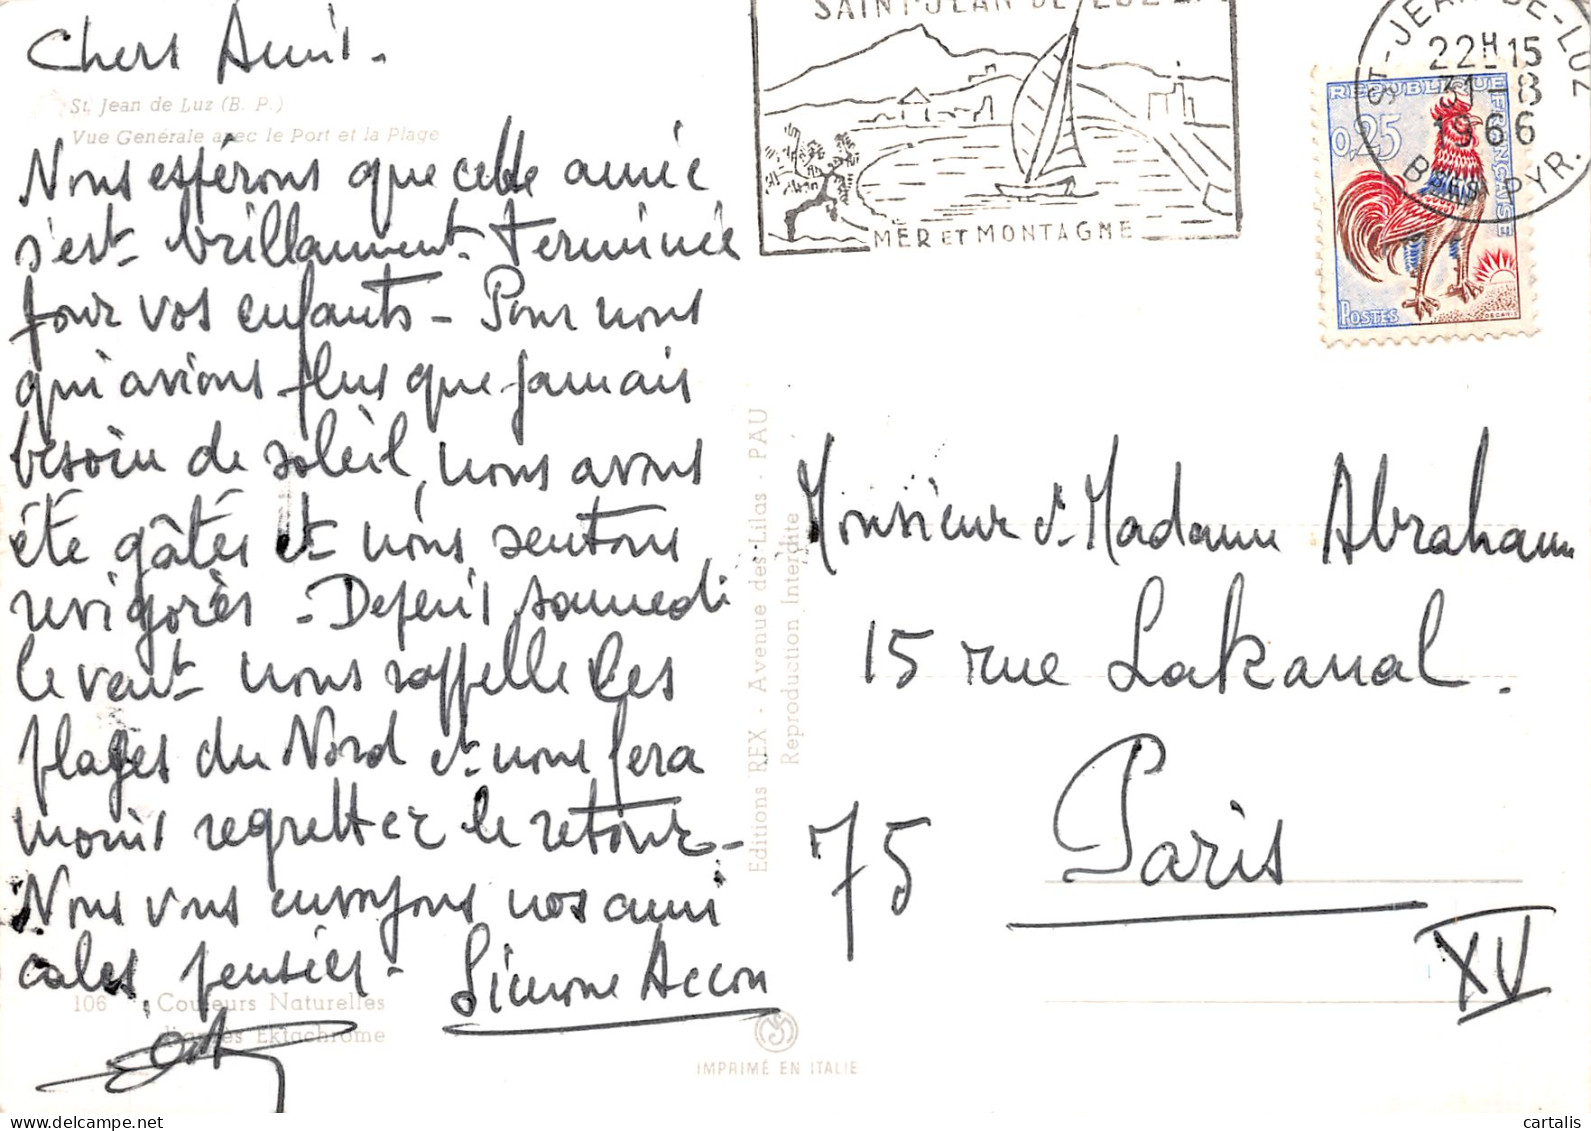 Chers Amis.
St. Jean de Luz (B. P.)
Vue Genérale avec le Port et la Plage
Nous espérons que cette année
s'est brillamment terminée
pour vos enfants - Pour nous
qui avions plus que jamais
besoin de soleil, nous avons
été gâtés et nous sentons
revigorés - Depuis samedi
le vent nous rappelle les
plages du Nord et nous fera
moins regretter le retour -
Nous vous envoyons nos ami
cales pensées - Simone Accon
106 Couleurs Naturelles
d'après Ektachrome
Editions REX - Avenue des Lilas - PAU
Reproduction Interdite
IMPRIMÉ EN ITALIE
SAINT-JEAN-DE-LUZ
MER ET MONTAGNE
ST-JEAN-DE-LUZ
22H15
31-8
1966
BSES PYR.
REPUBLIQUE FRANÇAISE
0,25
POSTES
DECARIS
Monsieur et Madame Abraham
15 rue Lakanal.
75 Paris
XV
cartalis